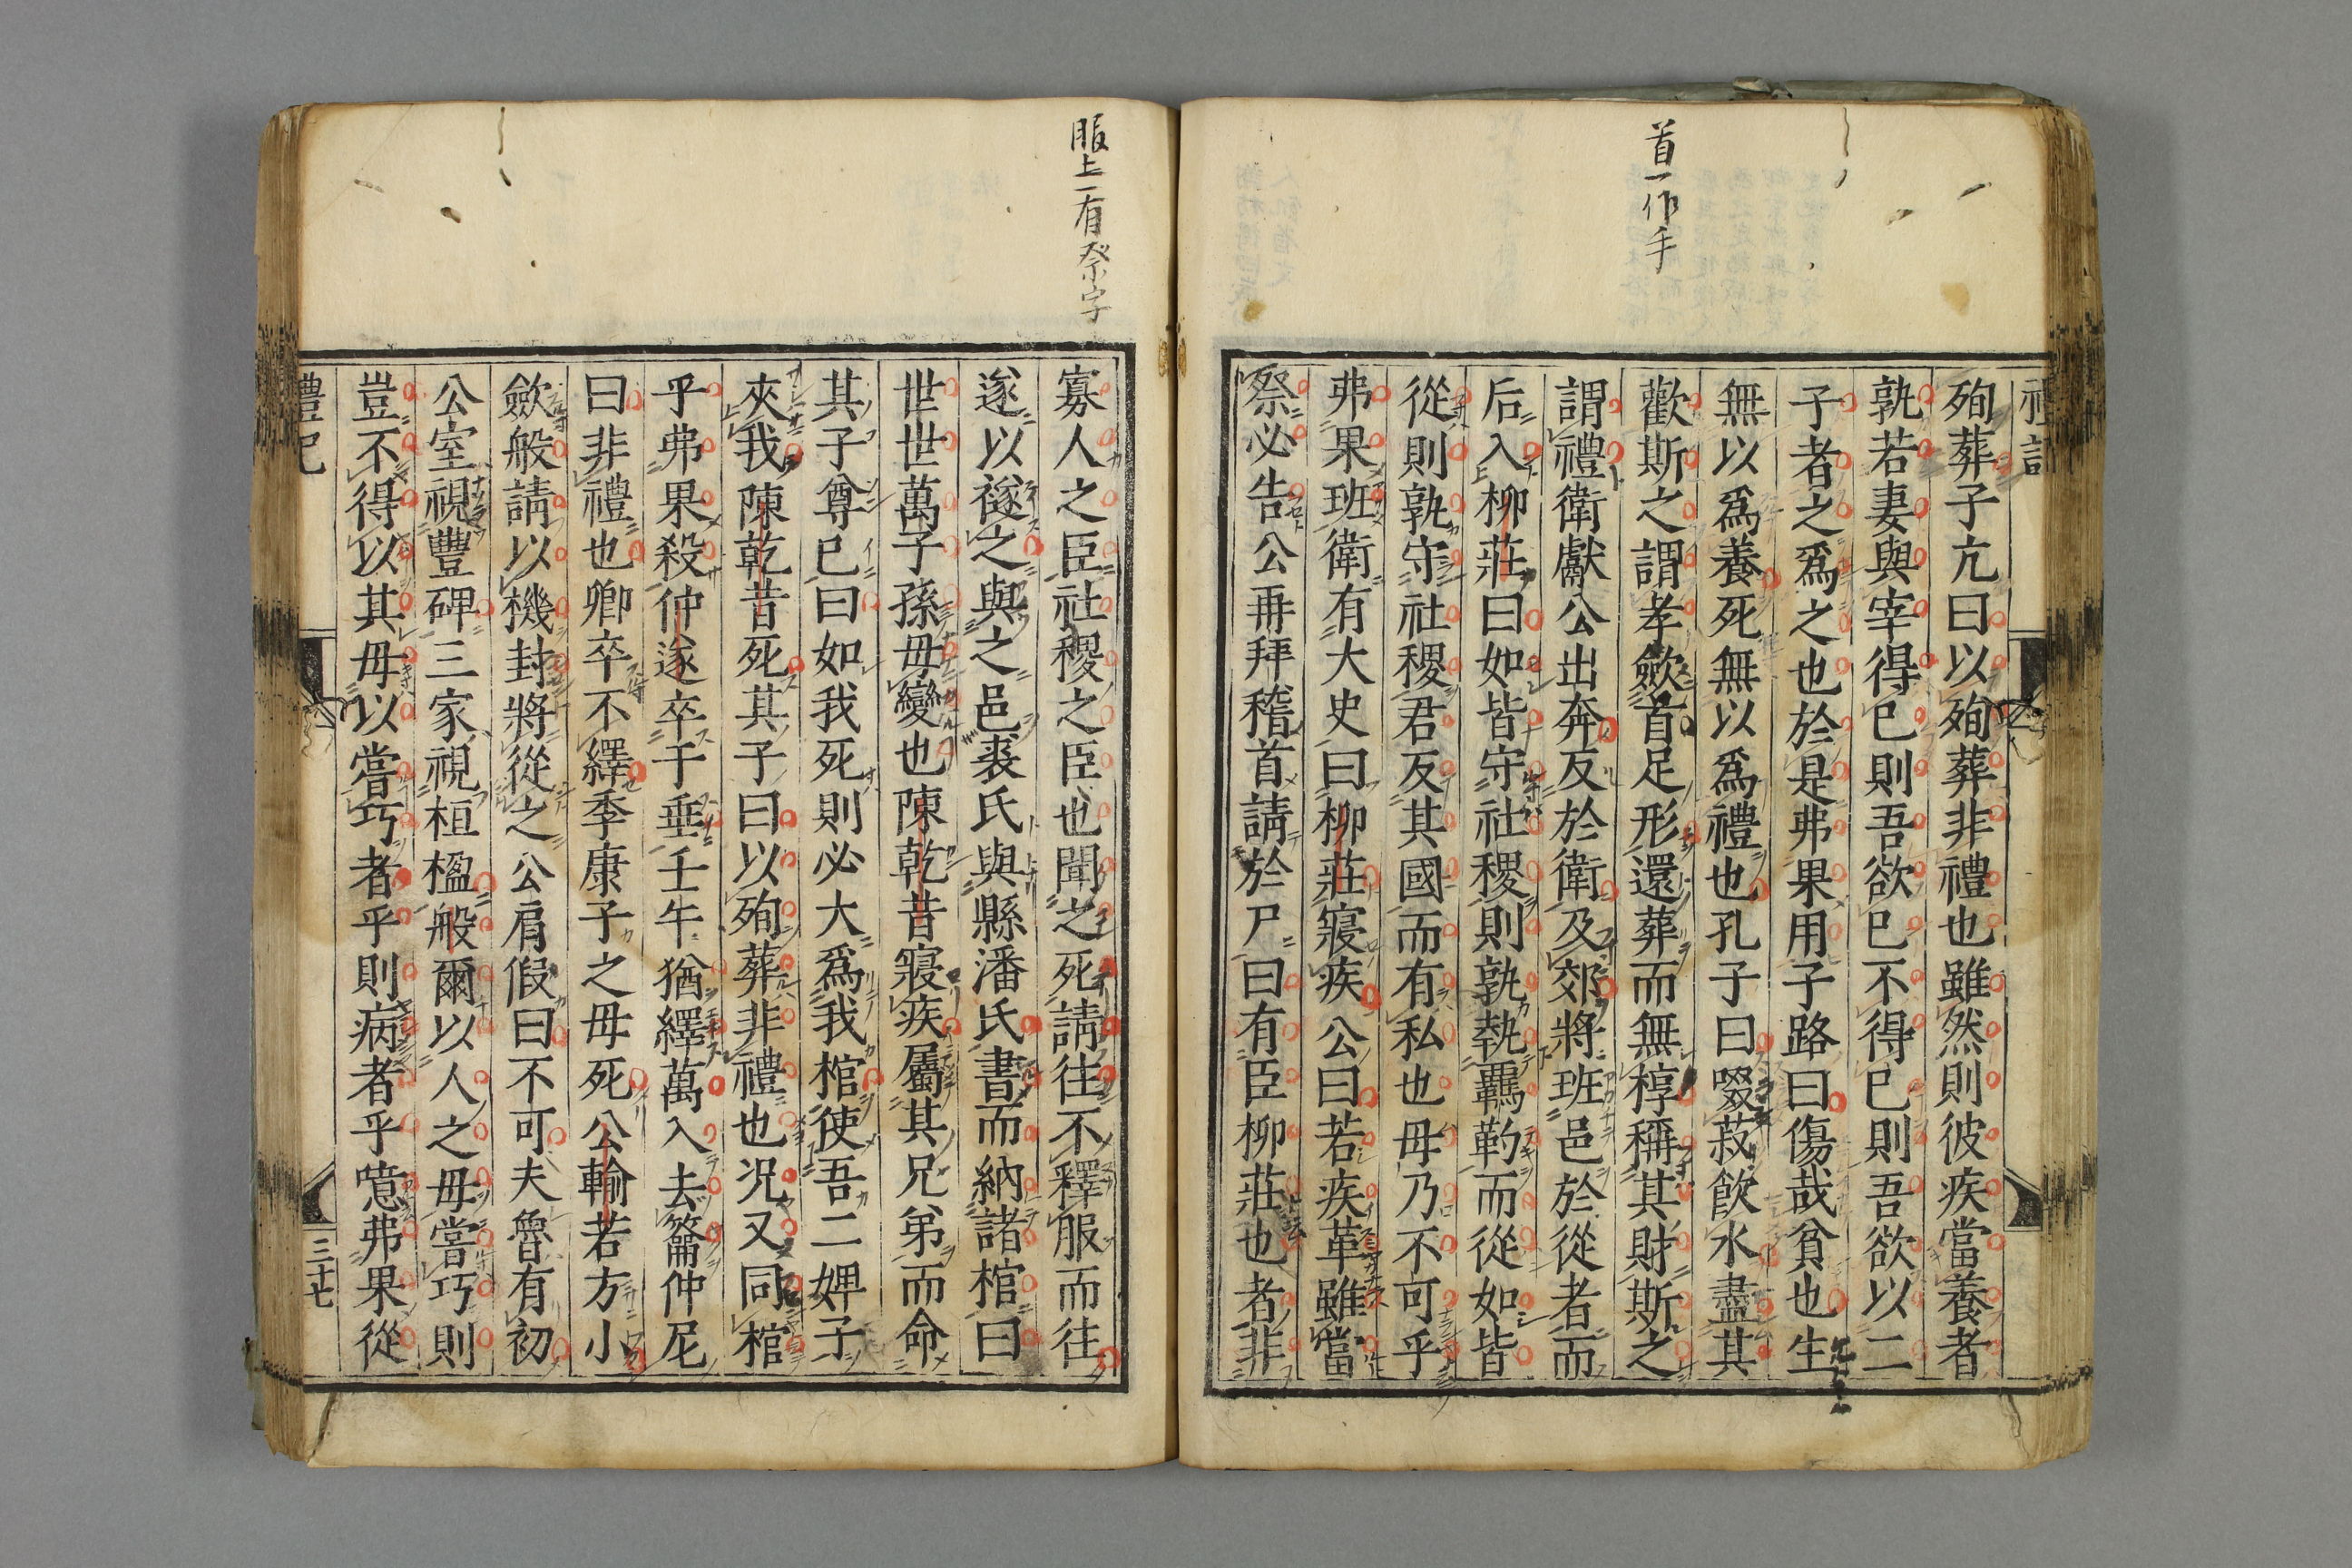 首一作手
禮記
殉葬子亢曰以殉葬非禮也雖然則彼疾當養者
孰若妻與宰得已則吾欲已不得已則吾欲以二
子者之爲之也於是弗果用子路曰傷哉貧也生
無以爲養死無以爲禮也孔子曰啜菽飮水盡其
歡斯之謂孝斂首足形還葬而無椁稱其財斯之
謂禮衛獻公出奔反於衛及郊將班邑於從者而
后入柳莊曰如皆守社稷則孰執羈靮而從如皆
從則孰守社稷君反其國而有私也毋乃不可乎
弗果班衛有大史曰柳莊寢疾公曰若疾革雖當
祭必告公再拜稽首請於尸曰有臣柳莊也者非
服上一有祭字
寡人之臣社稷之臣也聞之死請往不釋服而往
遂以襚之與之邑裘氏與縣潘氏書而納諸棺曰
世世萬子孫毋變也陳乾昔寢疾屬其兄弟而命
其子尊已曰如我死則必大爲我棺使吾二婢子
夾我陳乾昔死其子曰以殉葬非禮也况又同棺
乎弗果殺仲遂卒于垂壬午猶繹萬入去籥仲尼
曰非禮也卿卒不繹季康子之母死公輸若方小
斂般請以機封將從之公肩假曰不可夫魯有初
公室視豐碑三家視桓楹般爾以人之母嘗巧則
豈不得以其母以嘗巧者乎則病者乎噫弗果從
禮記
三十七